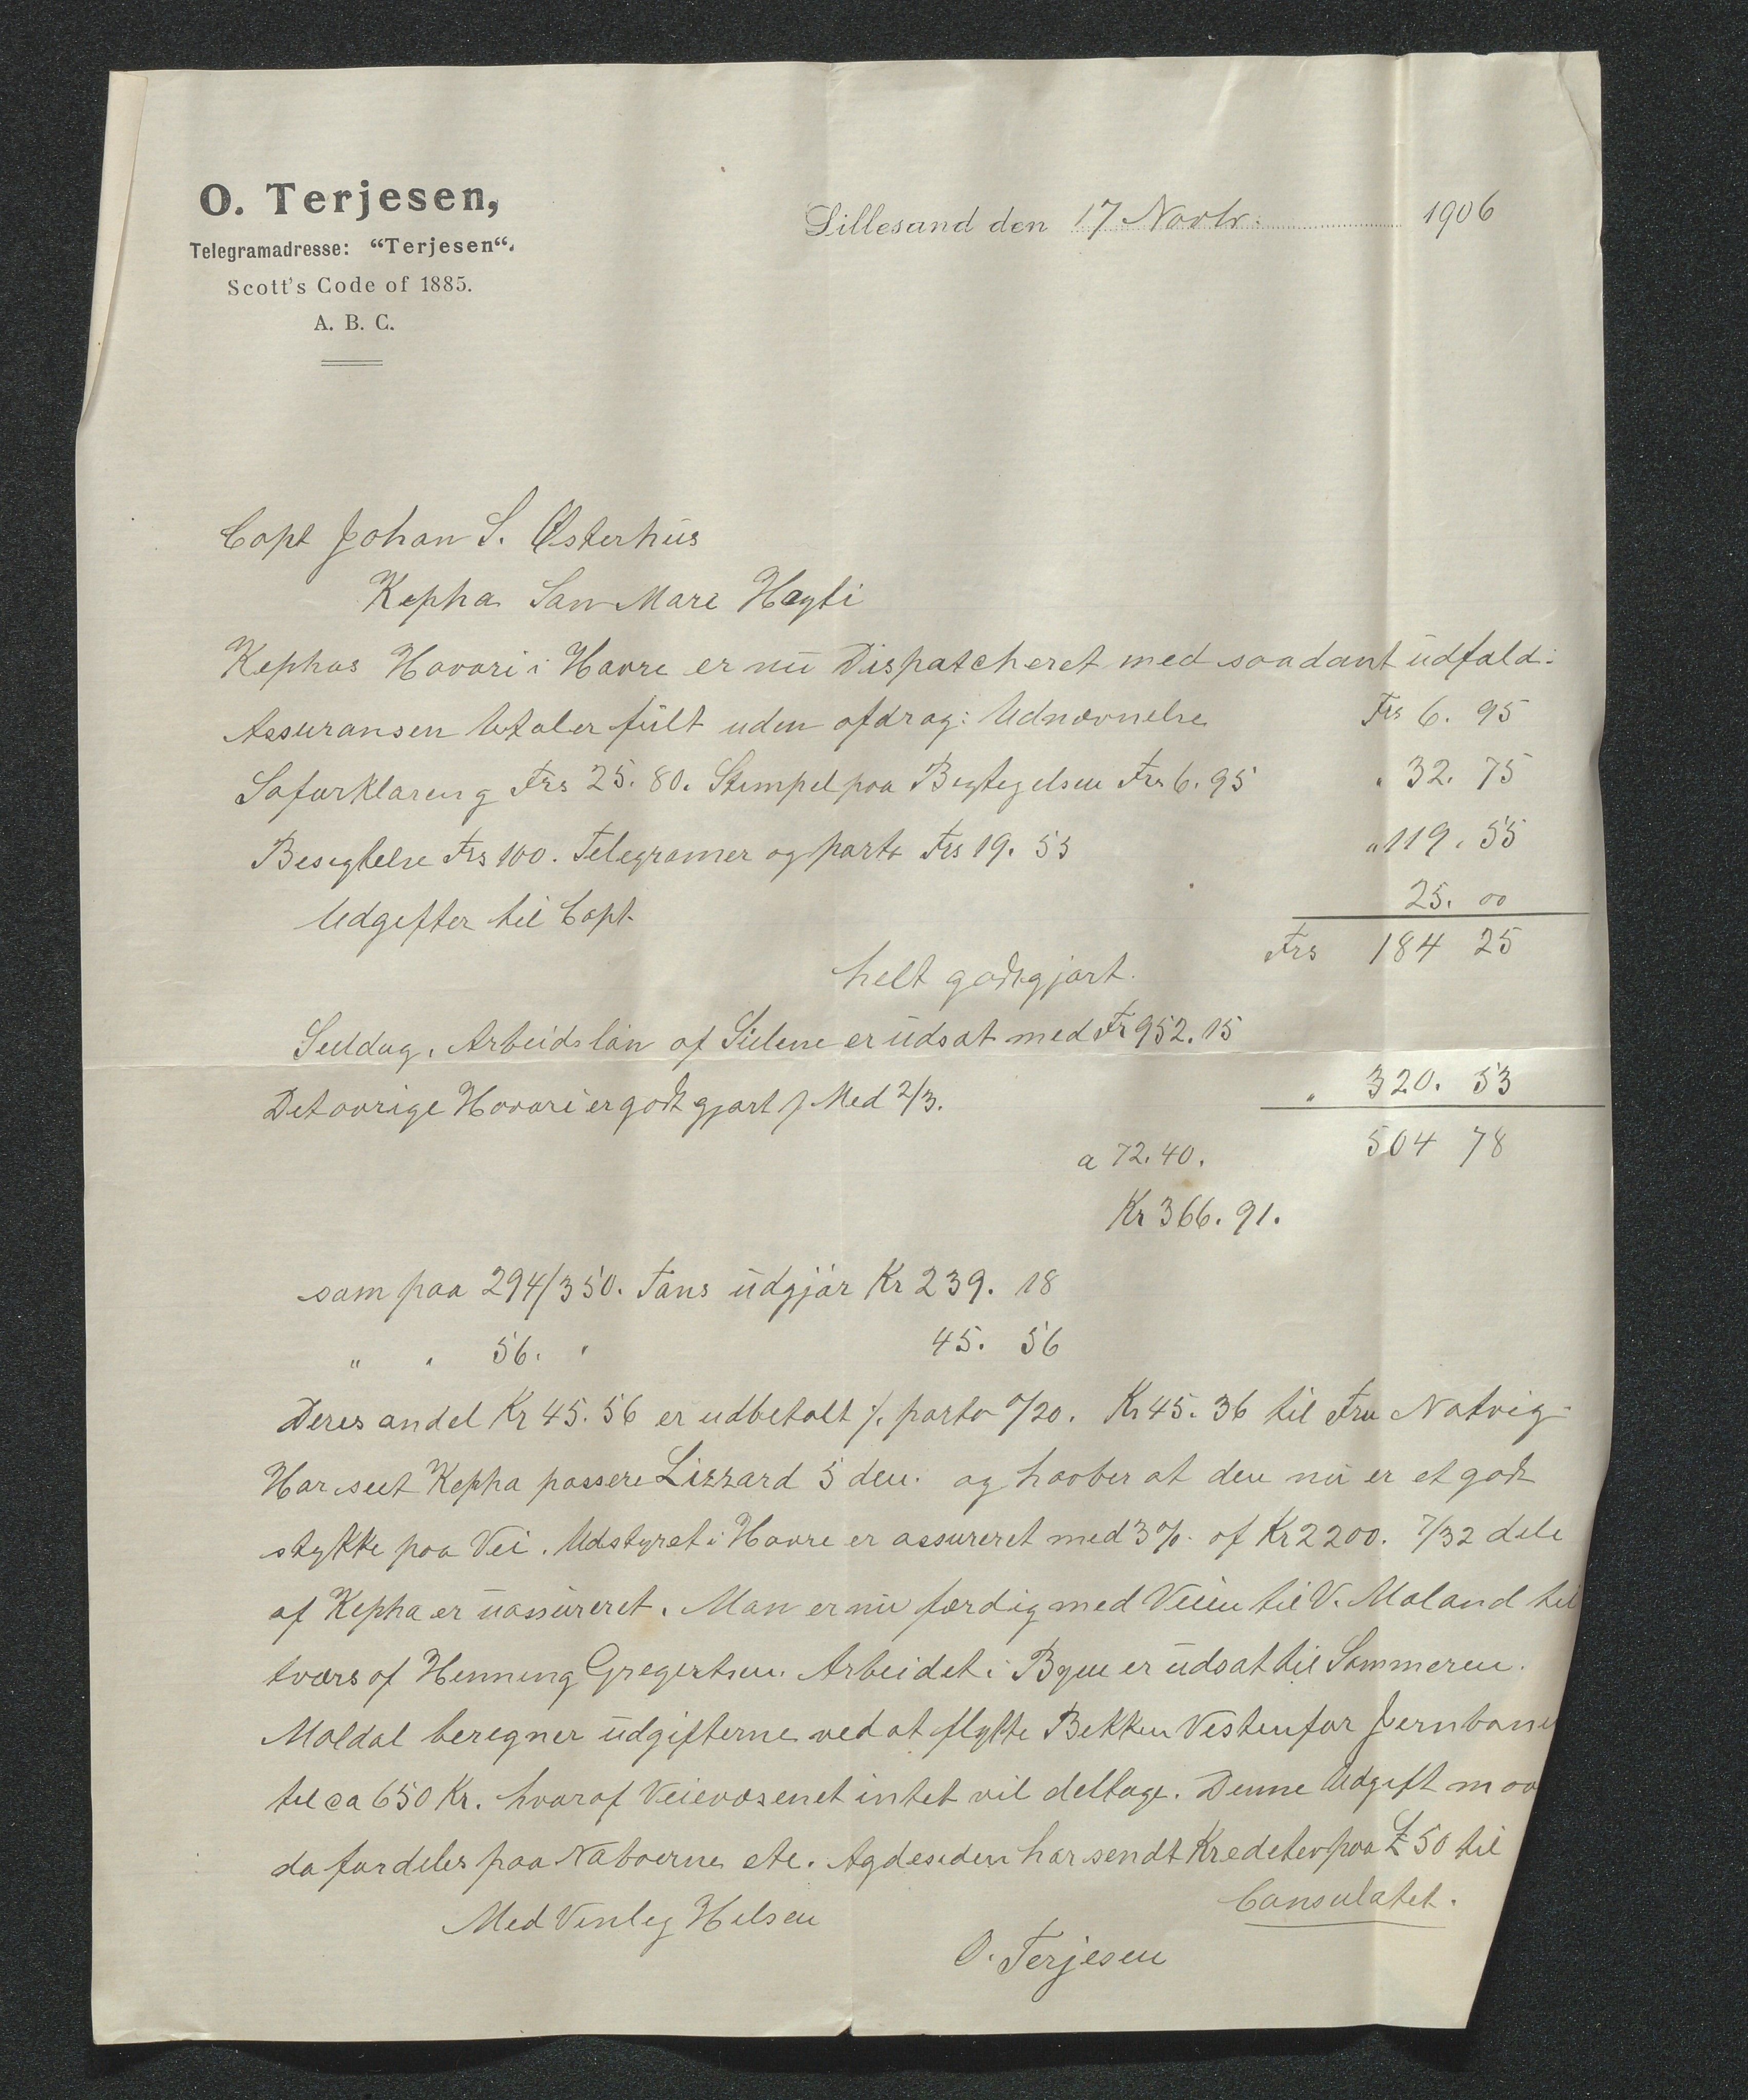 O. Terjesen,
Telegramadresse: “Terjesen“.
Scott's Code of 1885.
A. B. C.
Lillesand den 17 Novbr. 1906
Capt Johan S. Østerhus
Kepha San Marc Hayti
Kephas Havari i Havre er nu Dispatcheret med saadant udfald:
Assuransen betaler fult uden afdrag: Udnævnelse Frs 6. 95
Søforklareng Frs 25. 80. Stempel paa Besigtegelsen Frs 6. 95 " 32. 75
Besigtelse Frs 100. Telegramer og porto Frs 19. 55 " 119. 55
Udgifter til Capt. 25. 00
Frs 184 25
helt godtgjort.
Seildug, Arbeidsløn af Seilene er udsat med Fr 952. 15
Det øvrige Havari er godtgjort / Med 2/3. " 320. 53
a 72. 40. 504 78
Kr 366. 91.
som paa 294/350. Tons udgjør Kr 239. 18
" " 56. " 45. 56
Deres andel Kr 45. 56 er udbetalt ./. porto 0/20. Kr 45. 36 til Fru Natvig.
Har seet Kepha passere Lizzard 5 den. og haaber at den nu er et godt
stykke paa Vei. Udstyret i Havre er assureret med 3% af Kr 2200. 7/32 dele
af Kepha er uassureret. Man er nu færdig med Veien til V. Moland til
tværs af Henning Gregertsen. Arbeidet i Byen er udsat til Sommeren.
Moldal beregner udgifterne ved at flytte Bekken Vestenfor Jernbane
til ca 650 Kr. hvoraf Veievæsenet intet vil deltage. Denne Udgift maa
da fordeles paa Naboerne etc. Agdesiden har sendt Kreditev paa £ 50 til
Consulatet.
Med Venleg Helsen
O. Terjesen